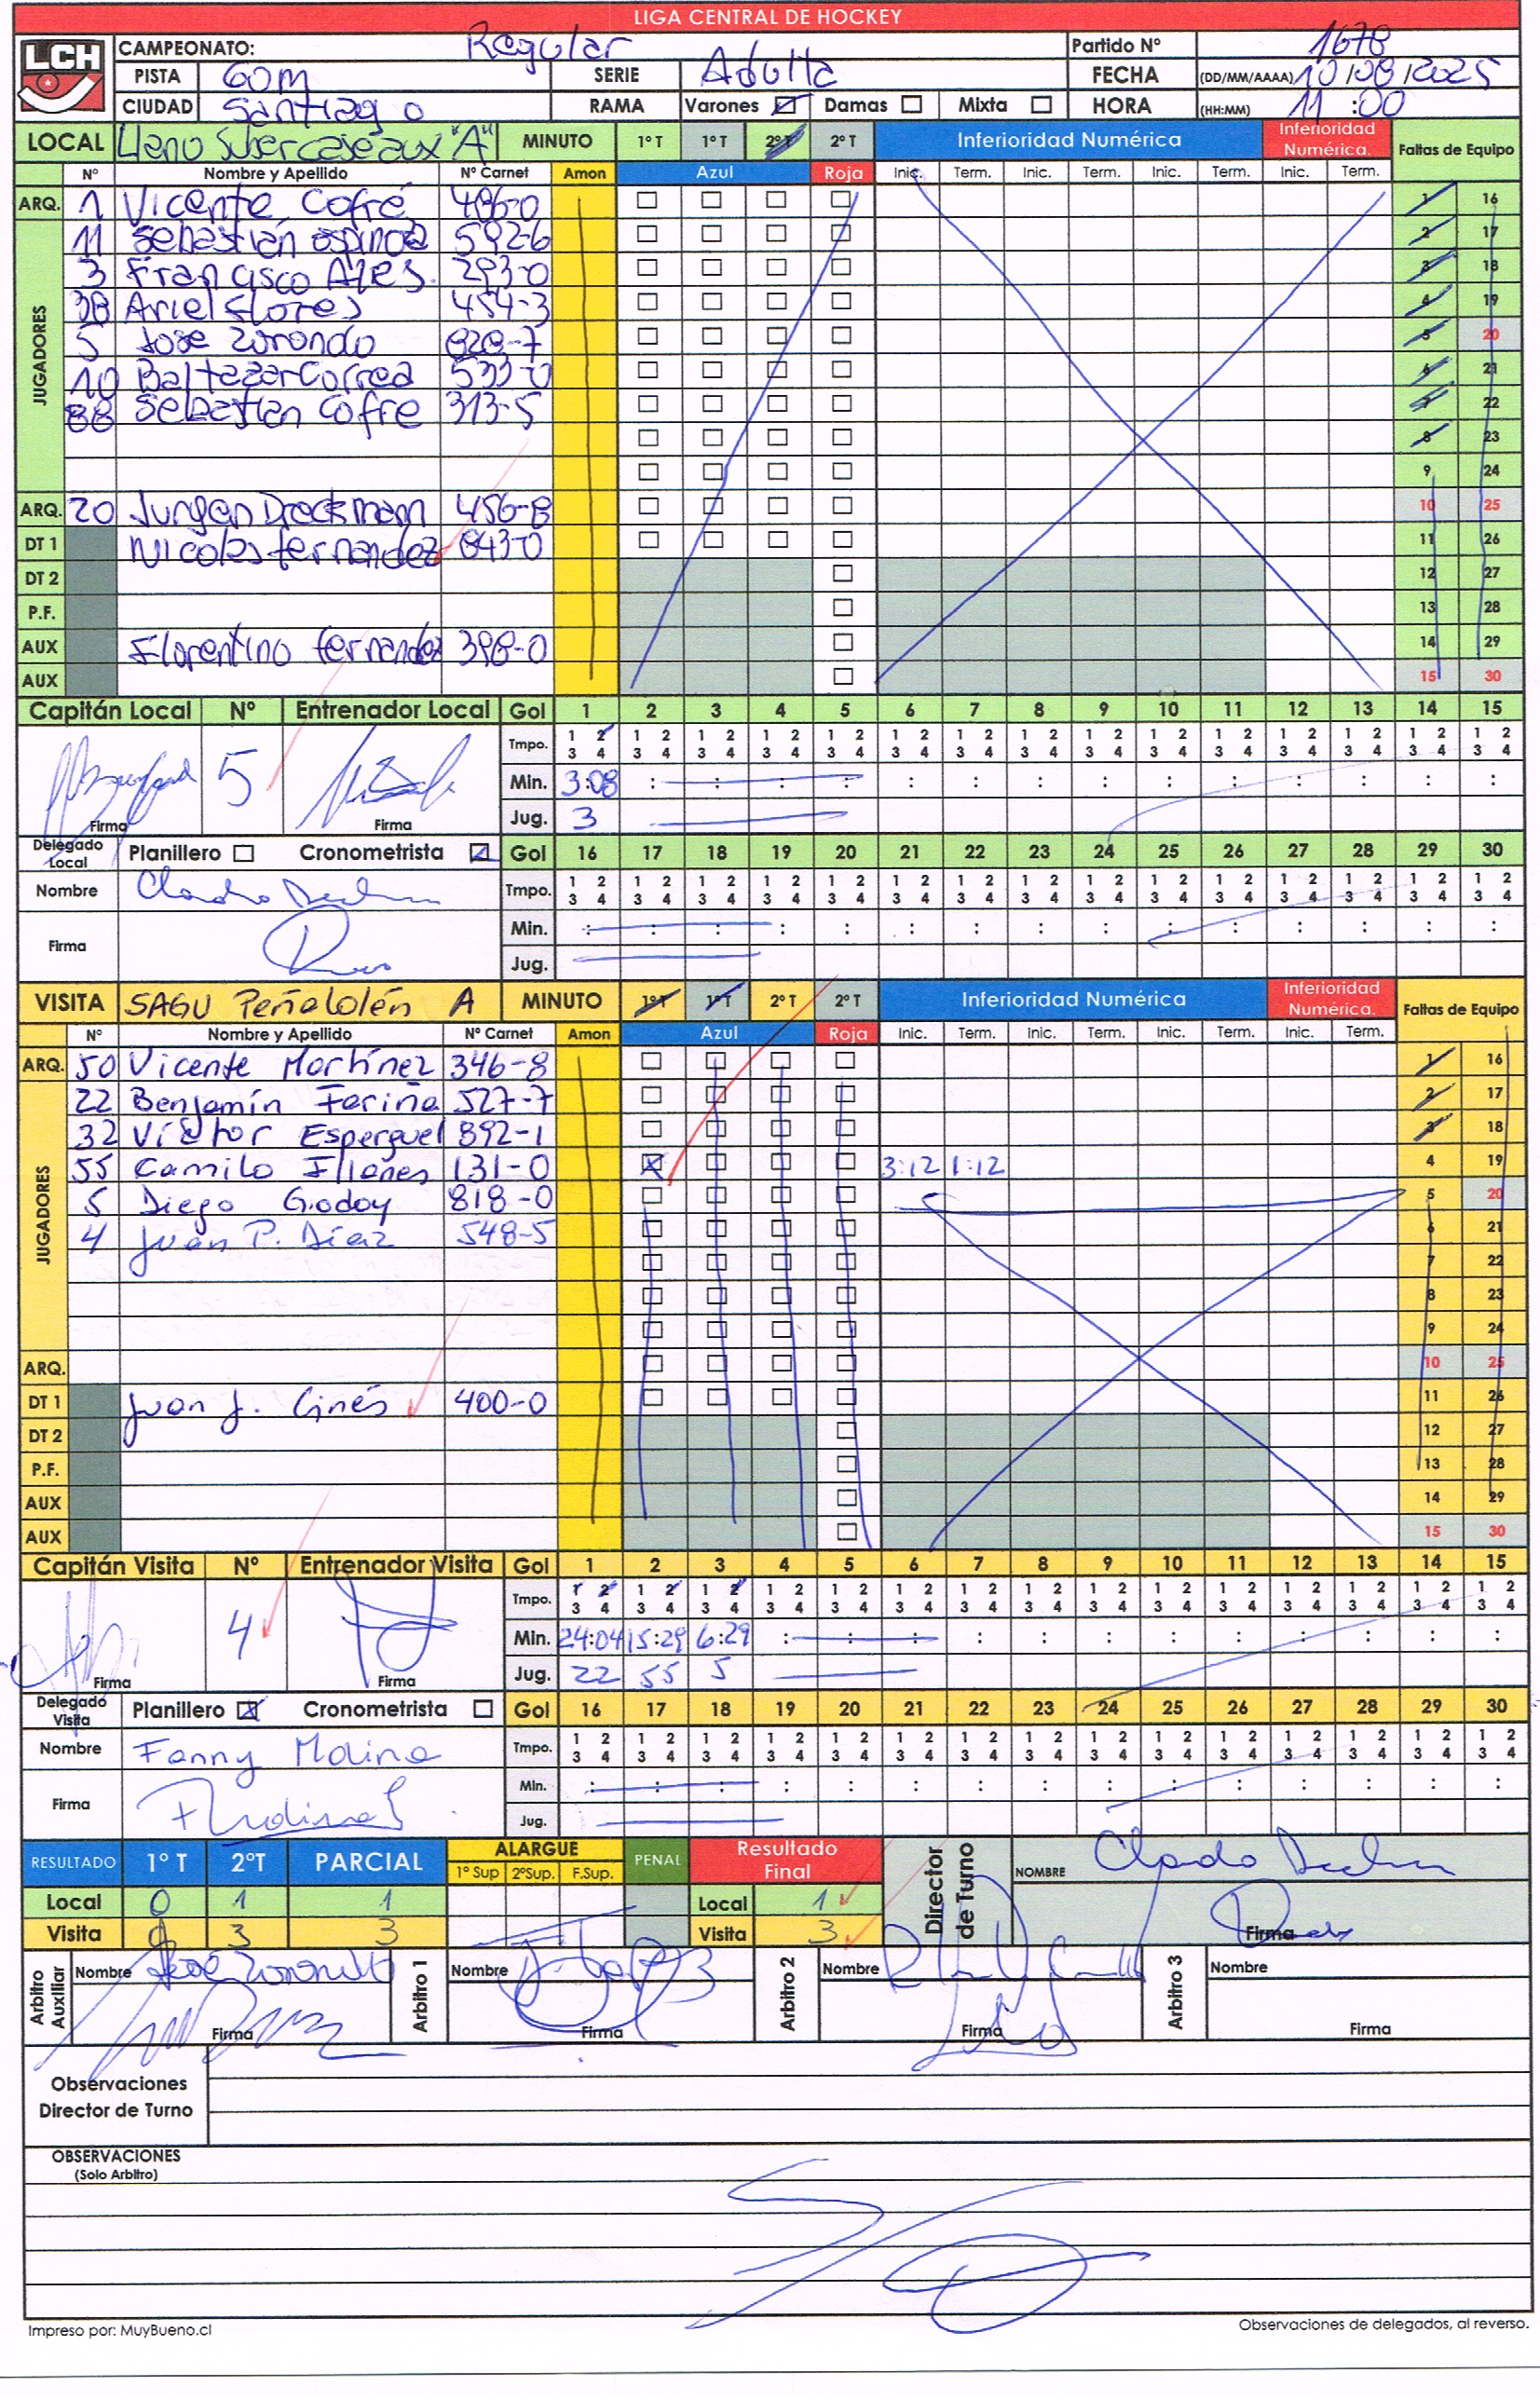 LIGA CENTRAL DE HOCKEY
LCH CAMPEONATO: Regular Partido Nº 1678
PISTA GOM SERIE Adulta FECHA (DD/MM/AAAA) 10/08/2025
CIUDAD Santiago RAMA Varones Damas Mixta HORA (HH:MM) 11:00
LOCAL Lleno Subercaseaux "A" MINUTO 1º T 1º T 2º T 2º T Inferioridad Numérica Inferioridad Numérica. Faltas de Equipo
Nº Nombre y Apellido Nº Carnet Amon Azul Roja Inic. Term. Inic. Term. Inic. Term. Inic. Term.
ARQ. 1 Vicente Cofré 486-0 1 16
JUGADORES
11 Sebastián Espinoza 592-6 2 17
3 Francisco 293-0 3 18
38 Ariel Flores 454-3 4 19
5 Jose Zorondo 828-7 5 20
10 Baltazar Correa 533-0 6 21
88 Sebastián Cofre 313-5 7 22
8 23
9 24
ARQ. 20 Jurgen Dreckmann 456-8 10 25
DT 1 Nicolas fernandez 843-0 11 26
DT 2 12 27
P.F. 13 28
AUX Florentino fernandez 398-0 14 29
AUX 15 30
Capitán Local Nº Entrenador Local Gol 1 2 3 4 5 6 7 8 9 10 11 12 13 14 15
Tmpo. 1 2 1 2 1 2 1 2 1 2 1 2 1 2 1 2 1 2 1 2 1 2 1 2 1 2 1 2 1 2
3 4 3 4 3 4 3 4 3 4 3 4 3 4 3 4 3 4 3 4 3 4 3 4 3 4 3 4 3 4
5 Min. 3:08 : : : : : : : : : : : : : :
Firma Firma Jug. 3
Delegado Local Planillero Cronometrista Gol 16 17 18 19 20 21 22 23 24 25 26 27 28 29 30
Nombre Tmpo. 1 2 1 2 1 2 1 2 1 2 1 2 1 2 1 2 1 2 1 2 1 2 1 2 1 2 1 2 1 2
3 4 3 4 3 4 3 4 3 4 3 4 3 4 3 4 3 4 3 4 3 4 3 4 3 4 3 4 3 4
Firma Min. : : : : : : : : : : : : : : :
Jug.
VISITA SAGU Peñalolén A MINUTO 1º T 1º T 2º T 2º T Inferioridad Numérica Inferioridad Numérica. Faltas de Equipo
Nº Nombre y Apellido Nº Carnet Amon Azul Roja Inic. Term. Inic. Term. Inic. Term. Inic. Term.
ARQ. 50 Vicente Martínez 346-8 1 16
JUGADORES
22 Benjamín Fariña 527-7 2 17
32 Víctor Esperguel 892-1 3 18
55 Camilo Illanes 131-0 3:12 1:12 4 19
5 Diego Godoy 818-0 5 20
4 Juan P. Díaz 548-5 6 21
7 22
8 23
9 24
ARQ. 10 25
DT 1 Juan J. Ginés 400-0 11 26
DT 2 12 27
P.F. 13 28
AUX 14 29
AUX 15 30
Capitán Visita Nº Entrenador Visita Gol 1 2 3 4 5 6 7 8 9 10 11 12 13 14 15
Tmpo. 1 2 1 2 1 2 1 2 1 2 1 2 1 2 1 2 1 2 1 2 1 2 1 2 1 2 1 2 1 2
3 4 3 4 3 4 3 4 3 4 3 4 3 4 3 4 3 4 3 4 3 4 3 4 3 4 3 4 3 4
4 Min. 24:04 15:29 6:29 : : : : : : : : : : : :
Firma Firma Jug. 22 55 5
Delegado Visita Planillero Cronometrista Gol 16 17 18 19 20 21 22 23 24 25 26 27 28 29 30
Nombre Fanny Molina Tmpo. 1 2 1 2 1 2 1 2 1 2 1 2 1 2 1 2 1 2 1 2 1 2 1 2 1 2 1 2 1 2
3 4 3 4 3 4 3 4 3 4 3 4 3 4 3 4 3 4 3 4 3 4 3 4 3 4 3 4 3 4
Firma Min. : : : : : : : : : : : : : : :
Jug.
RESULTADO 1º T 2ºT PARCIAL ALARGUE 1º Sup 2ºSup. F.Sup. PENAL Resultado Final Director de Turno NOMBRE
Local 0 1 1 Local 1
Visita 0 3 3 Visita 3 Firma
Arbitro Auxiliar Nombre Arbitro 1 Nombre Arbitro 2 Nombre Arbitro 3 Nombre
Firma Firma Firma Firma
Observaciones
Director de Turno
OBSERVACIONES
(Solo Arbitro)
Impreso por: MuyBueno.cl Observaciones de delegados, al reverso.